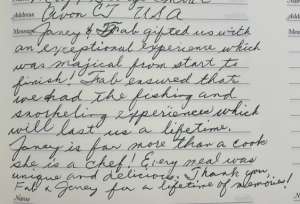 Address Avon CT USA
Message Janey & Fhab gifted us with
an exceptional experience which
was majical from start to
finish! Fhab ensured that
we had the fishing and
snorkeling experiences which
will last us a lifetime.
Janey is far more than a cook
she is a chef! Every meal was
unique and delicious. Thank you
& Janey for a lifetime of memories!
Name